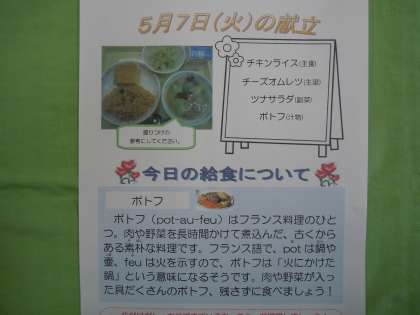 5月7日(火)の献立
チキンライス(主食)
チーズオムレツ(主菜)
ツナサラダ(副菜)
ポトフ(汁物)
盛りつけの
参考にしてください。
今日の給食について
ポトフ
ポトフ(pot-au-feu)はフランス料理のひと
つ。肉や野菜を長時間かけて煮込んだ、古くから
ある素朴な料理です。フランス語で、potは鍋や
壷、feuは火を示すので、ポトフは「火にかけた
鍋」という意味になるそうです。肉や野菜が入っ
た具だくさんのポトフ、残さずに食べましょう!